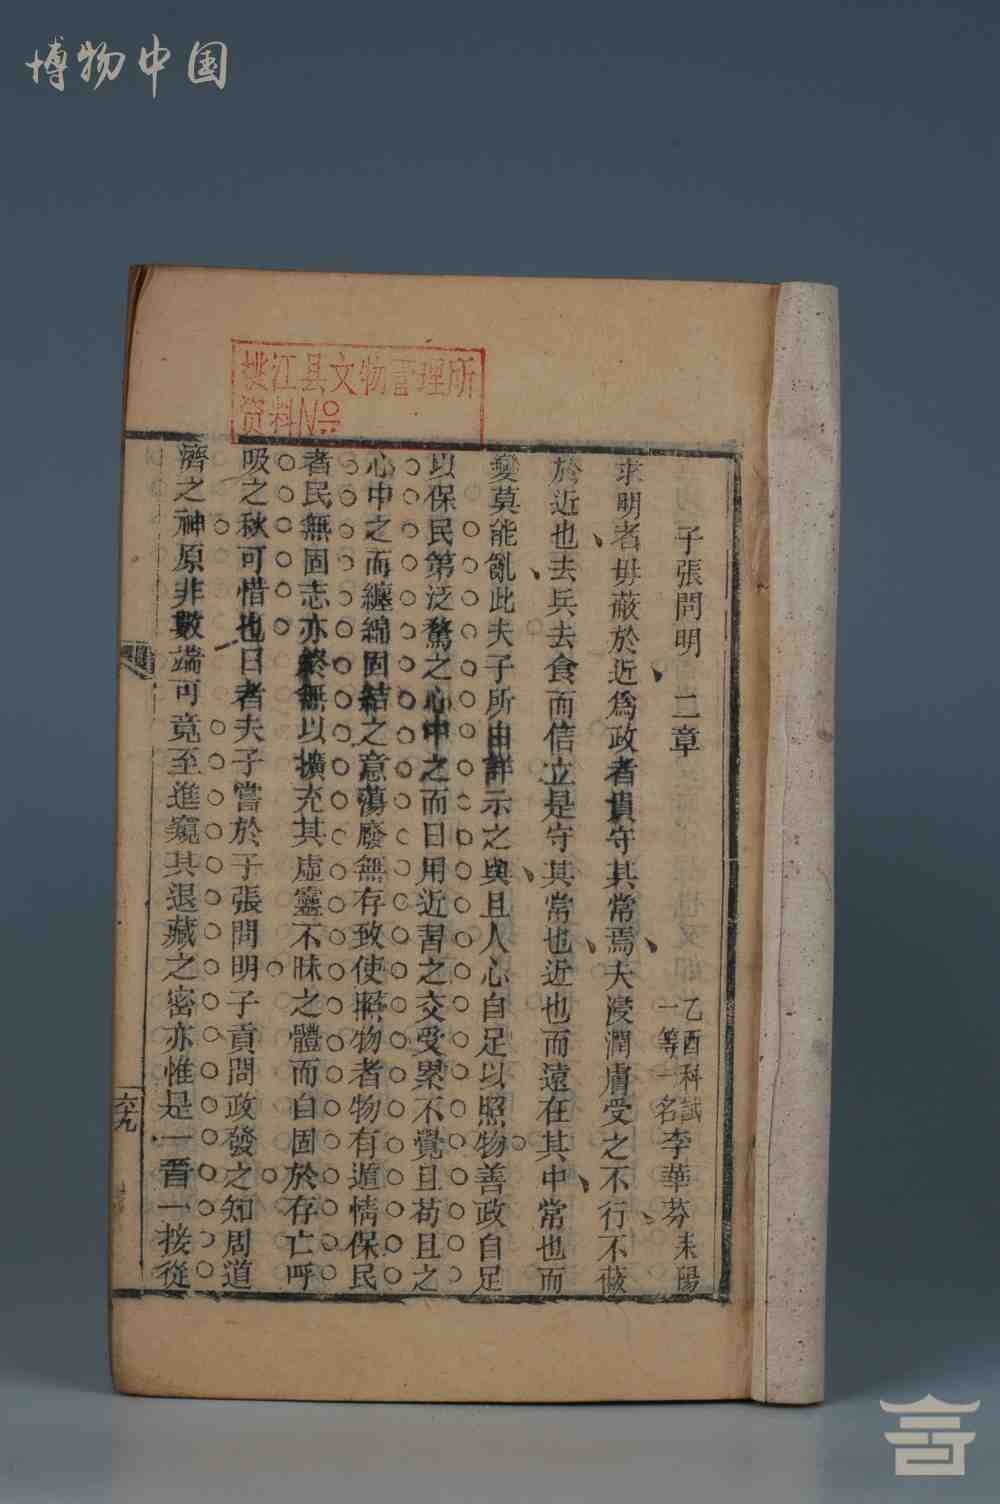 博物中国
桃江县文物管理所
资料№
子張問明 二章
乙酉科試
一等一名
李華芬 耒陽
求明者毋蔽於近爲政者貴守其常焉夫浸潤膚受之不行不蔽
於近也去兵去食而信立是守其常也近也而遠在其中常也而
變莫能亂此夫子所由詳示之與且人心自足以照物善政自足
以保民第泛騖之心中之而日用近習之交受累不覺且苟且之
心中之而纏綿固結之意蕩廢無存致使照物者物有遁情保民
者民無固志亦終無以擴充其虛靈不昧之體而自固於存亡呼
吸之秋可惜也曰者夫子嘗於子張問明子貢問政發之知周道
濟之神原非數端可竟至進窺其退藏之密亦惟是一晋一接從
六十九